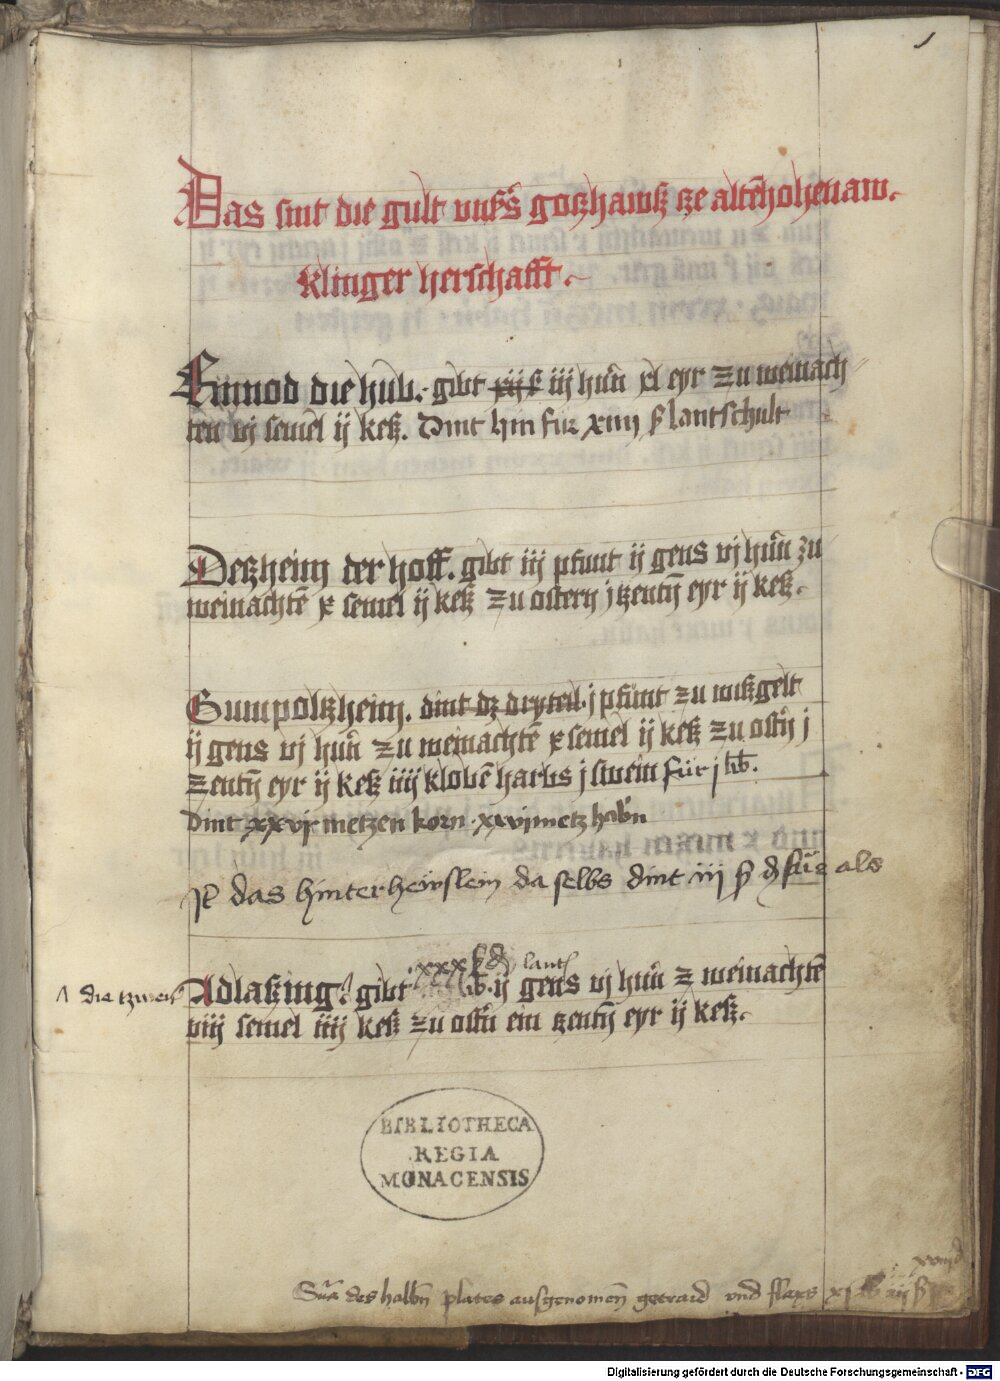 1
Das sint die gult unss gotzhawß tze altēhohenaw.
klinger herschafft.
Ainnod die hub. gibt xij ß iij hun̄ xl eyr zu weinach
ten vj semel ij keß. Dint hin fur xiiij ß lantschult
Detzheim der hoff. gibt iij pfunt ij gens vj hun̄ zu
weinachtē x semel ij keß zu ostern j tzentn̄ eyr ij keß.
Gumpoltzheim. dint dz dryteil j pfunt zu wißgelt
ij gens vj hun̄ zu weinachtē x semel ij keß zu ostn̄ j
zentn̄ eyr ij keß iiij klobē harbs j swein für j lb.
Dint xxvj metzen korn xxvj metz habn̄
Jt das hinterhewslein da selbs dint iij ß ₰ für als
xxx ß ₰ lants
Adlatzing. gibt lb. ij gens vj hun̄ z weinachtē
die tzwen
viij semel iiij keß zu ostn̄ ein tzentn̄ eyr ij keß.
BIBLIOTHECA
REGIA
MONACENSIS
xviij ₰
Sūa des halbn̄ plates ausgenomen̄ getraid vnd flaxs
Digitalisierung gefördert durch die Deutsche Forschungsgemeinschaft - DFG